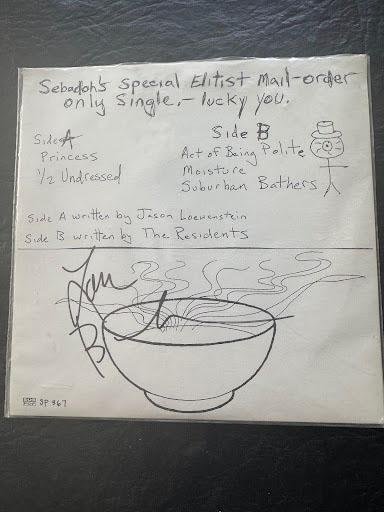 Sebadoh's Special Elitist Mail-order
only Single.- lucky you.
Side A
Princess
1/2 Undressed
Side B
Act of Being Polite
Moisture
Suburban Bathers
Side A written by Jason Loewenstein
Side B written by The Residents
Lou
B
SP 367